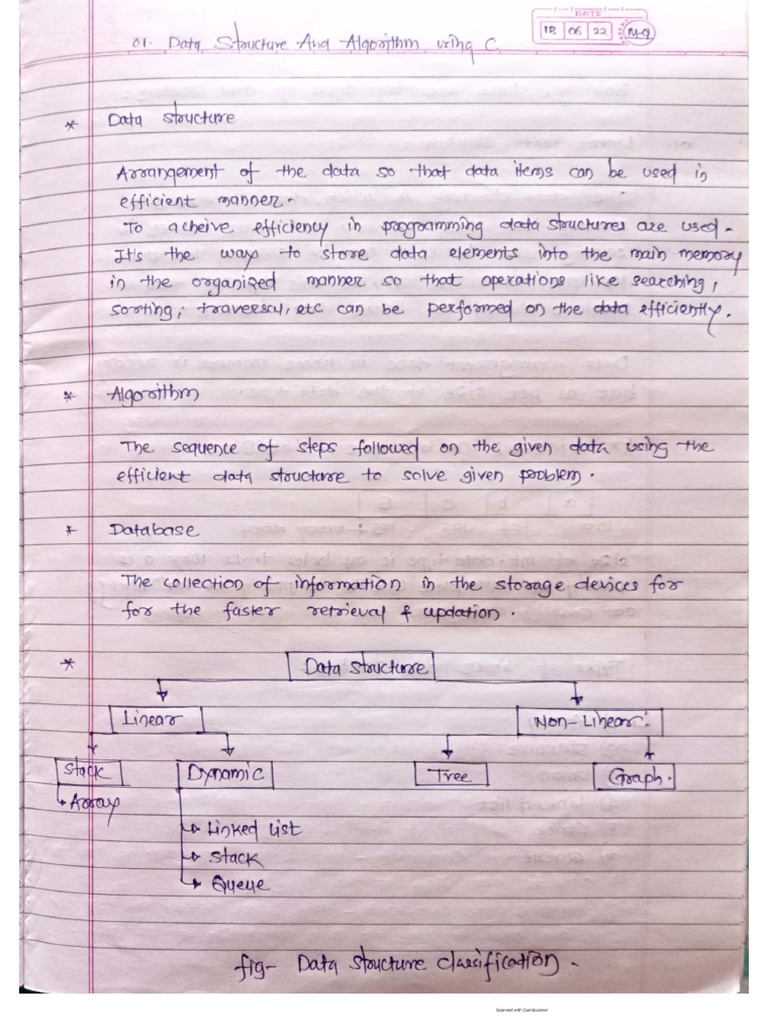 DATE
12 06 22
01. Data Structure And Algorithm using C
* Data structure
Arrangement of the data so that data items can be used in
efficient manner.
To acheive efficiency in programming data structures are used.
It's the way to store data elements into the main memory
in the organized manner so that operations like searching,
sorting, traversal, etc can be performed on the data efficiently.
* Algorithm
The sequence of steps followed on the given data using the
efficient data structure to solve given problem.
* Database
The collection of information in the storage devices for
for the faster retrieval & updation.
*
Data Structure
Linear Non-Linear.
Stack Dynamic Tree Graph.
Array
Linked List
Stack
Queue
fig- Data Structure Classification.
Scanned with CamScanner